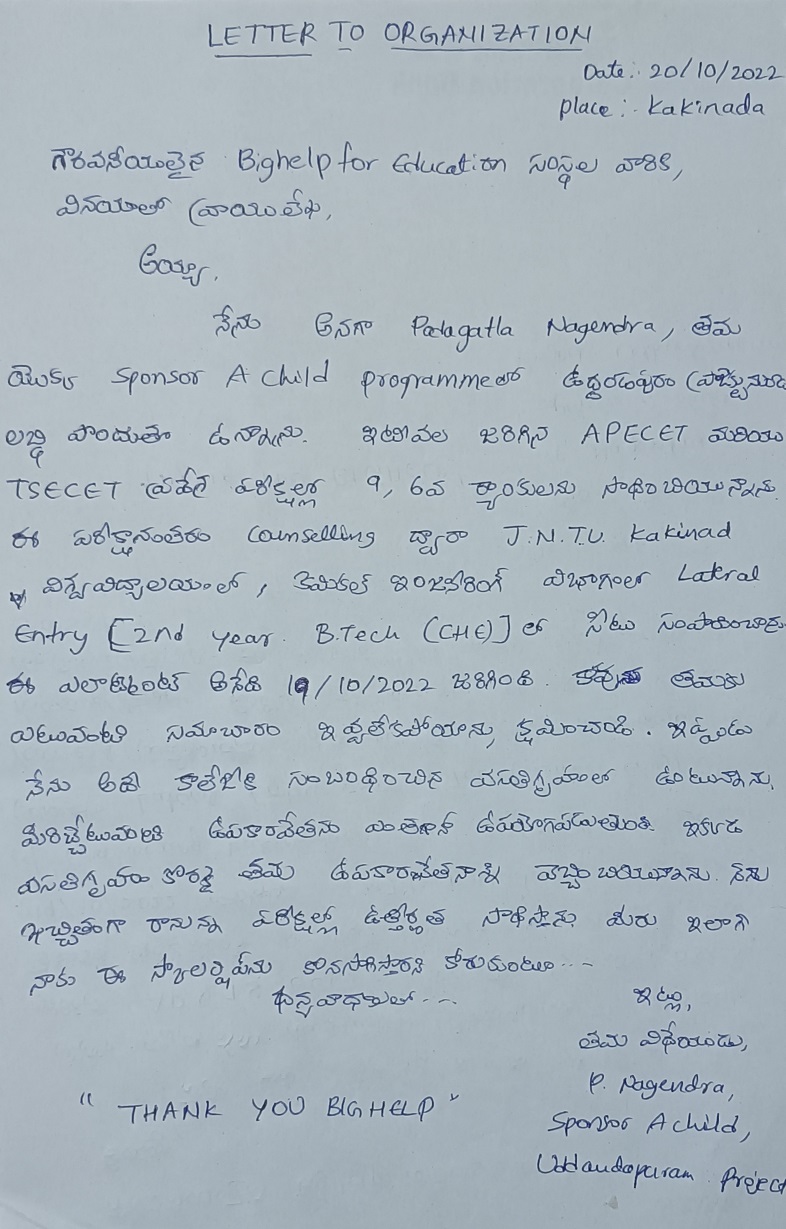 LETTER TO ORGANIZATION
Date:- 20/10/2022
place:- Kakinada
గౌరవనీయులైన Bighelp for Education సంస్థల వారికి,
వినయంతో వ్రాయు లేఖ,
అయ్యా,
నేను అనగా Padagatla Nagendra, తమ
యొక్క Sponsor A Child programmeలో ఉద్దండపురం ప్రాజెక్టు నుండి
లబ్ధి పొందుతూ ఉన్నాను. ఇటీవల జరిగిన APECET మరియు
TSECET ప్రవేశ పరీక్షల్లో 9, 6వ ర్యాంకులను సాధించియున్నాను.
ఈ పరీక్షానంతరం Counselling ద్వారా J.N.T.U. Kakinad
విశ్వవిద్యాలయంలో, కెమికల్ ఇంజనీరింగ్ విభాగంలో Lateral
Entry [2nd year. B.Tech (CHE)] లో సీటు సంపాదించాను.
ఈ ఎలాట్మెంట్ అనేది 19/10/2022 జరిగింది. తమకు
ఎటువంటి సమాచారం ఇవ్వలేకపోయాను, క్షమించండి. ఇప్పుడు
నేను అదే కాలేజీకి సంబంధించిన వసతిగృహంలో ఉంటున్నాను.
మీరిచ్చేటువంటి ఉపకారవేతనం ఎంతగానో ఉపయోగపడుతుంది. ఇక్కడ
వసతిగృహం కొరకై తమ ఉపకారవేతనాన్ని వెచ్చించియున్నాను. నేను
ఖచ్చితంగా రానున్న పరీక్షల్లో ఉత్తీర్ణత సాధిస్తాను. మీరు ఇలాగే
నాకు ఈ స్కాలర్షిప్‌ను కొనసాగిస్తారని కోరుకుంటూ---
ధన్యవాదాలతో---
ఇట్లు,
తమ విధేయుడు,
P. Nagendra,
" THANK YOU BIGHELP "
Sponsor A child,
Uddandapuram Project